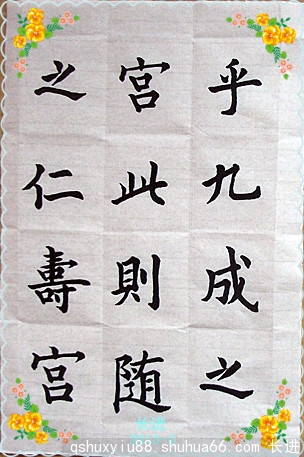 乎九成之
宮此則随
之仁壽宮
长进
qshuxyiu88.shuhua66.com 长进